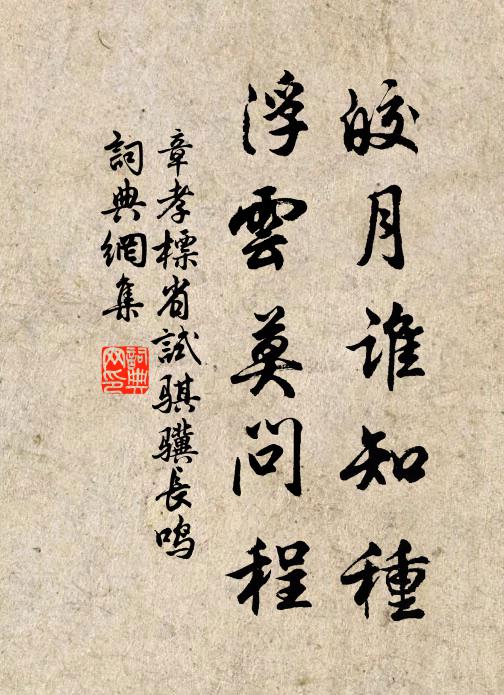 皎月誰知種
浮雲莫問程
章孝標省試騏驥長鳴
詞典網集
詞典网印